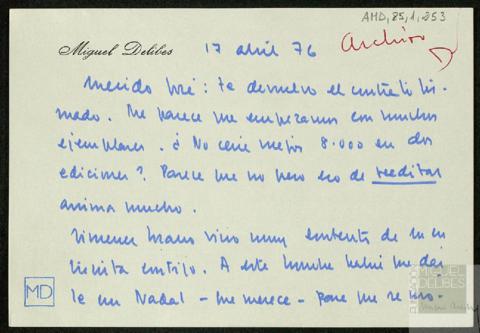 AMD, 85, 1, 253
Miguel Delibes
17 abril 76
Archivo
Querido José: te devuelvo el contrato fir-
mado. Me parece que empezamos con muchos
ejemplares. ¿No sería mejor 8.000 en dos
ediciones? Parece que no pero eso de reeditar
anima mucho.
vino muy contento de su en-
trevista contigo. A este hombre habrá que dar-
le un Nadal - que merece - para que se
MD
MIGUEL
DELIBES